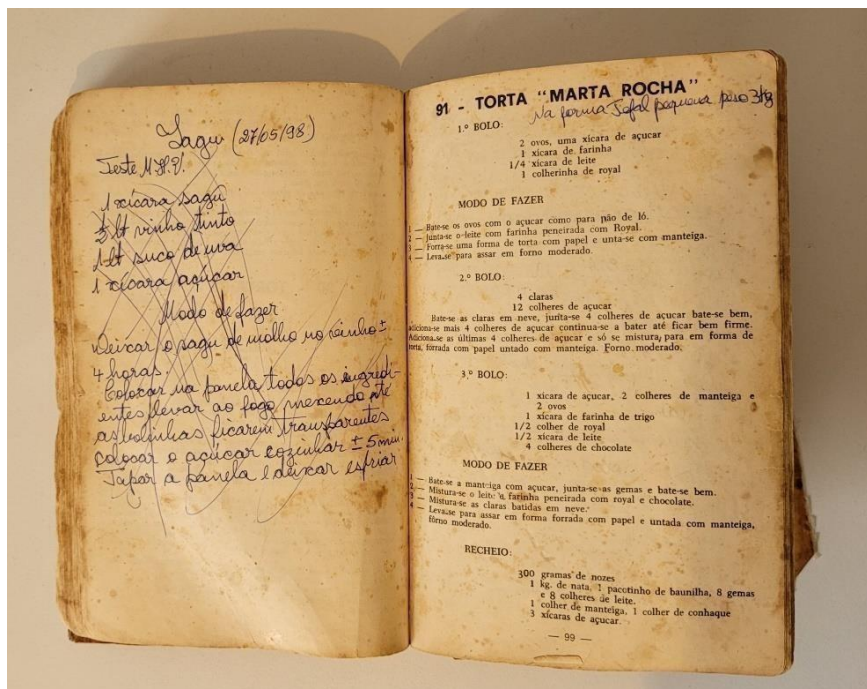 Sagu (27/05/98)
Teste M.H.V.
1 xícara sagu
1 lt suco de uva
1 xícara açúcar
Modo de fazer
Deixar o sagu de molho no vinho ±
4 horas.
Colocar na panela todos os ingredi-
entes levar ao fogo mexendo até
as bolinhas ficarem transparentes
colocar o açúcar cozinhar ± 5 min.
Tapar a panela e deixar esfriar
91 - TORTA "MARTA ROCHA"
Na forma Tefal pequena peso 3kg
1.º BOLO:
2 ovos, uma xícara de açucar
1 xícara de farinha
1/4 xícara de leite
1 colherinha de royal
MODO DE FAZER
1 — Bate-se os ovos com o açucar como para pão de ló.
2 — Junta-se o leite com farinha peneirada com Royal.
3 — Forra-se uma forma de torta com papel e unta-se com manteiga.
4 — Leva-se para assar em forno moderado.
2.º BOLO:
4 claras
12 colheres de açucar
Bate-se as claras em neve, junta-se 4 colheres de açucar bate-se bem,
adiciona-se mais 4 colheres de açucar continua-se a bater até ficar bem firme.
Adiciona-se as últimas 4 colheres de açucar e só se mistura, para em forma de
torta, forrada com papel untado com manteiga. Forno moderado.
3.º BOLO:
1 xícara de açucar, 2 colheres de manteiga e
2 ovos
1 xícara de farinha de trigo
1/2 colher de royal
1/2 xícara de leite
4 colheres de chocolate
MODO DE FAZER
1 — Bate-se a manteiga com açucar, junta-se as gemas e bate-se bem.
2 — Mistura-se o leite a farinha peneirada com royal e chocolate.
3 — Mistura-se as claras batidas em neve.
4 — Leva-se para assar em forma forrada com papel e untada com manteiga,
forno moderado.
RECHEIO:
300 gramas de nozes
1 kg. de nata, 1 pacotinho de baunilha, 8 gemas
e 8 colheres de leite.
1 colher de manteiga, 1 colher de conhaque
3 xícaras de açucar.
— 99 —